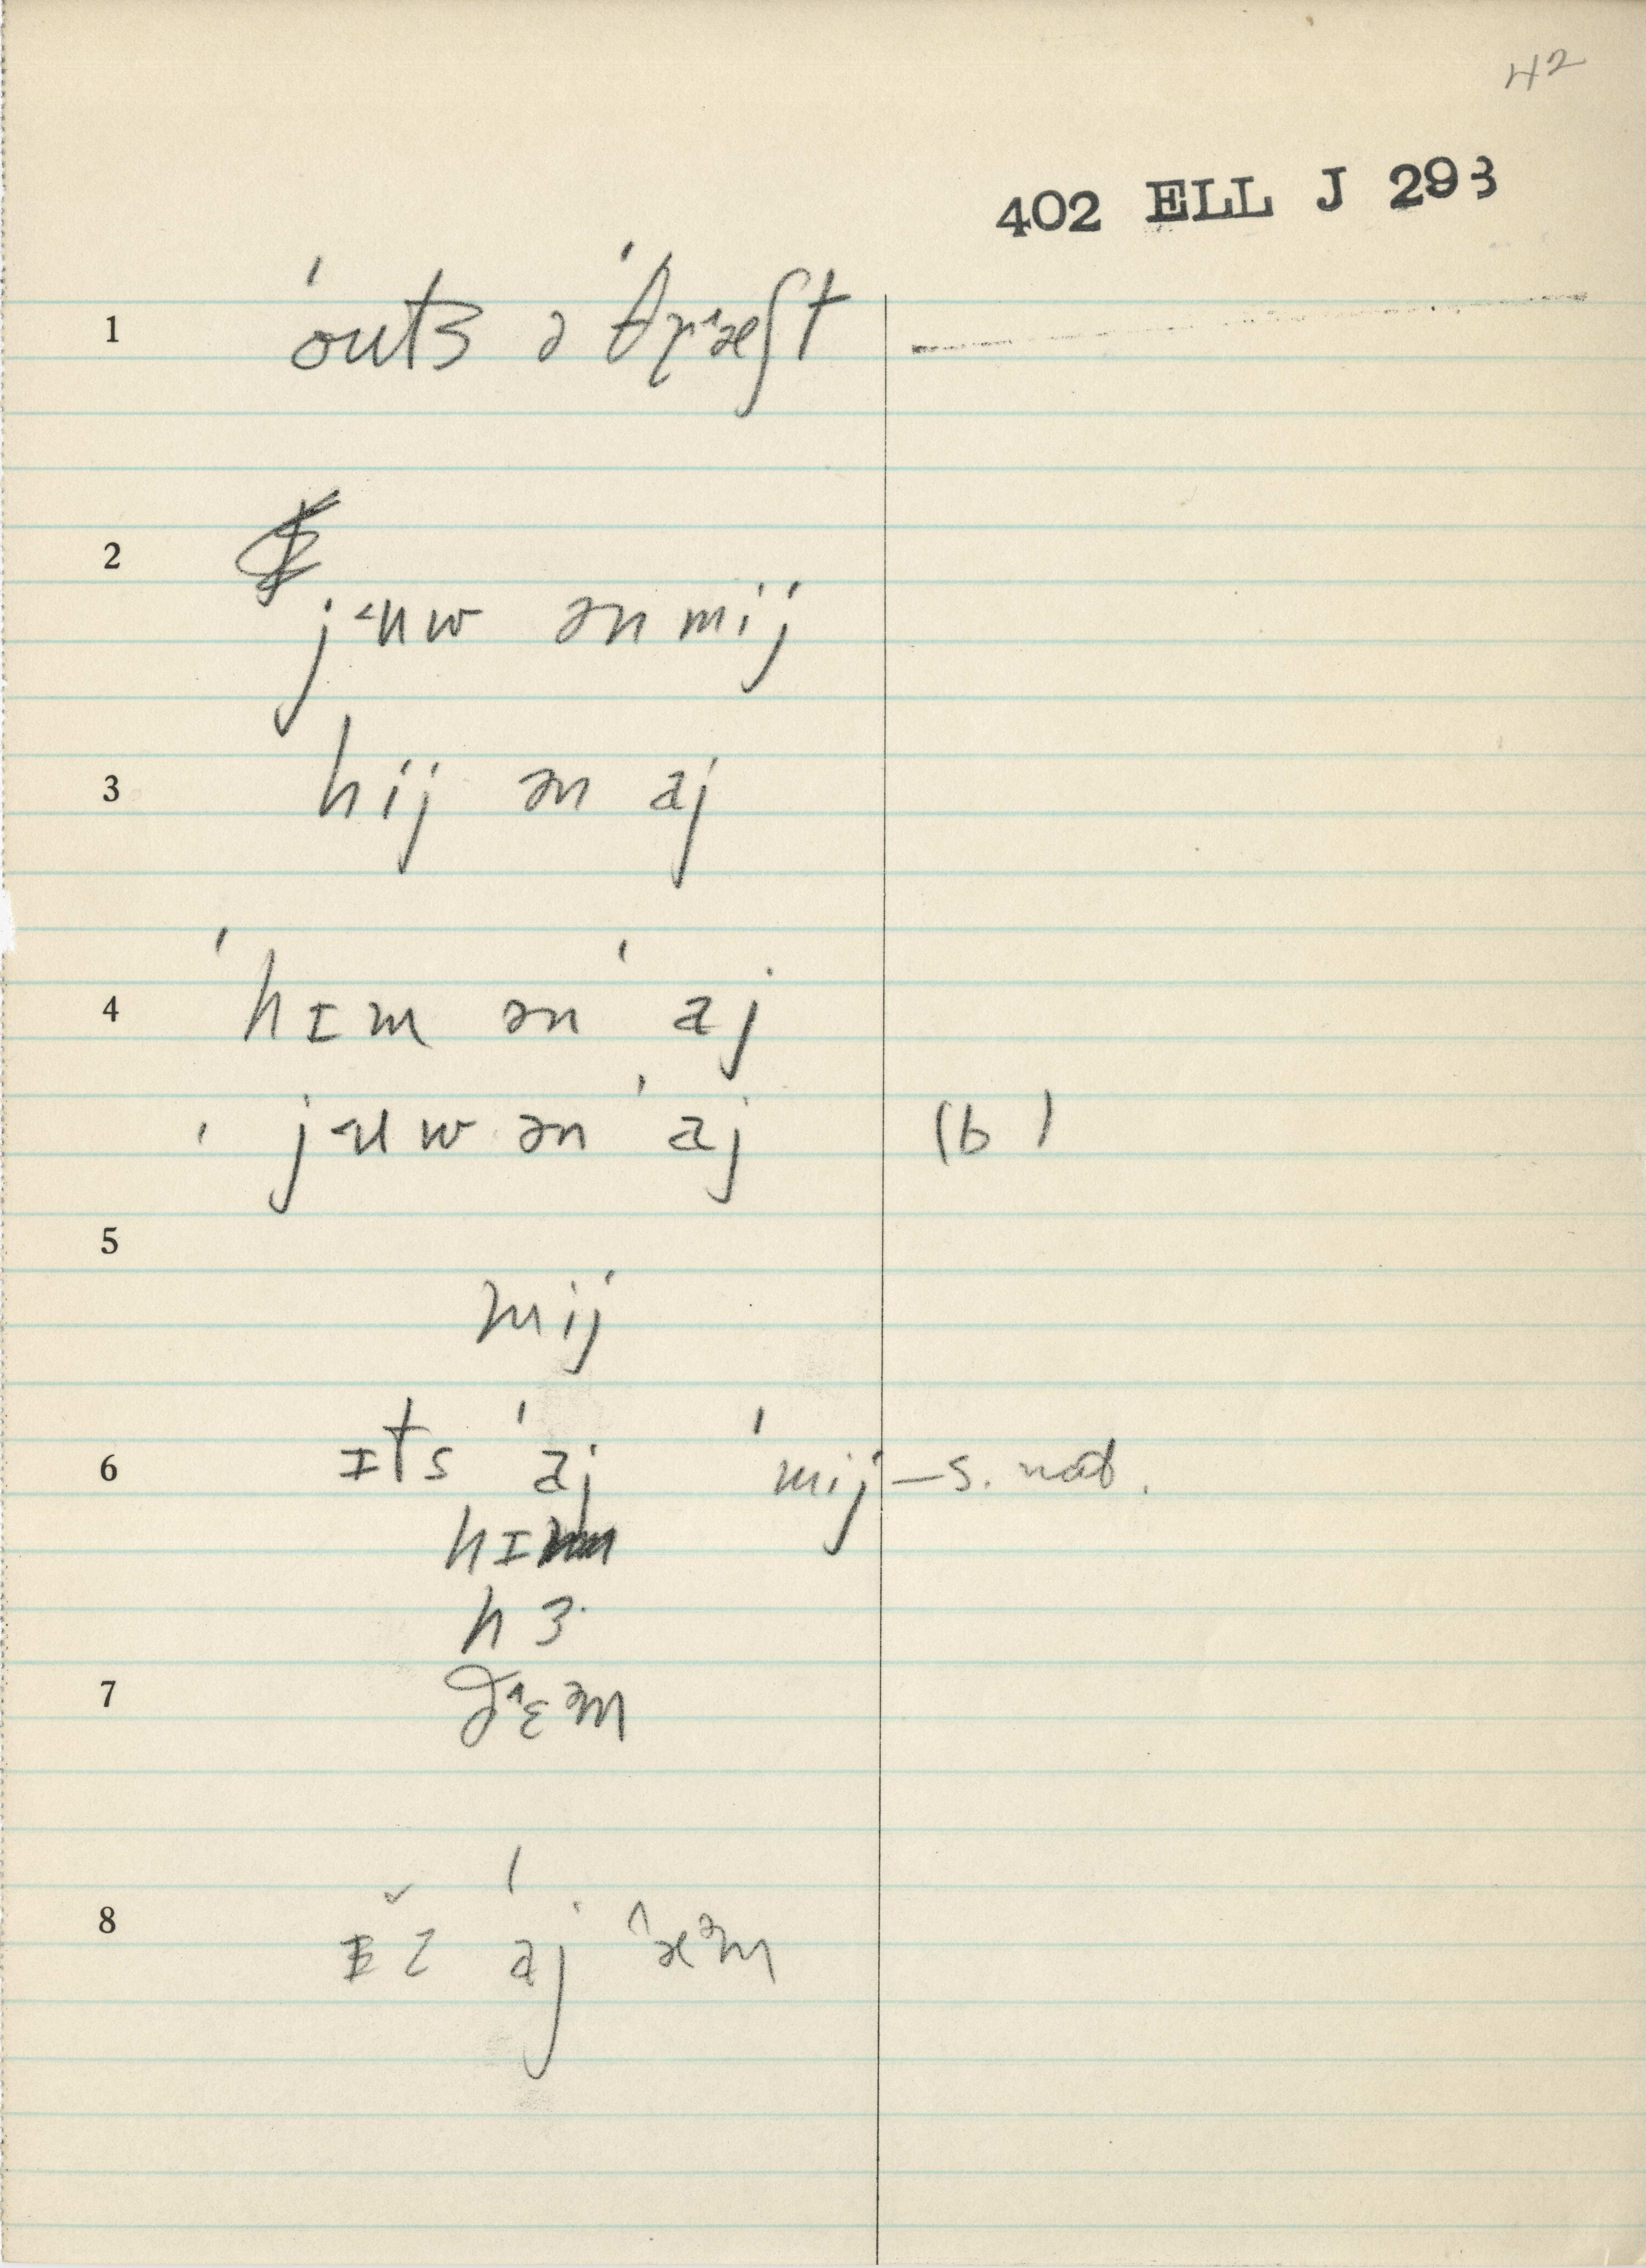 42
402 ELL J 293
1 ˈouts ə ˈθrʌæʃt
2
j˂uw ən mij
3 hij ən aj
4 ˈhɪm ən ˈaj
ˈj˂uw ən ˈaj (b)
5
mij
6 ɪts ˈaj ˈmij — s. nat.
hɪm
hɜ
7 ð^ɛəm
8 ɪz ˈaj ^æəm